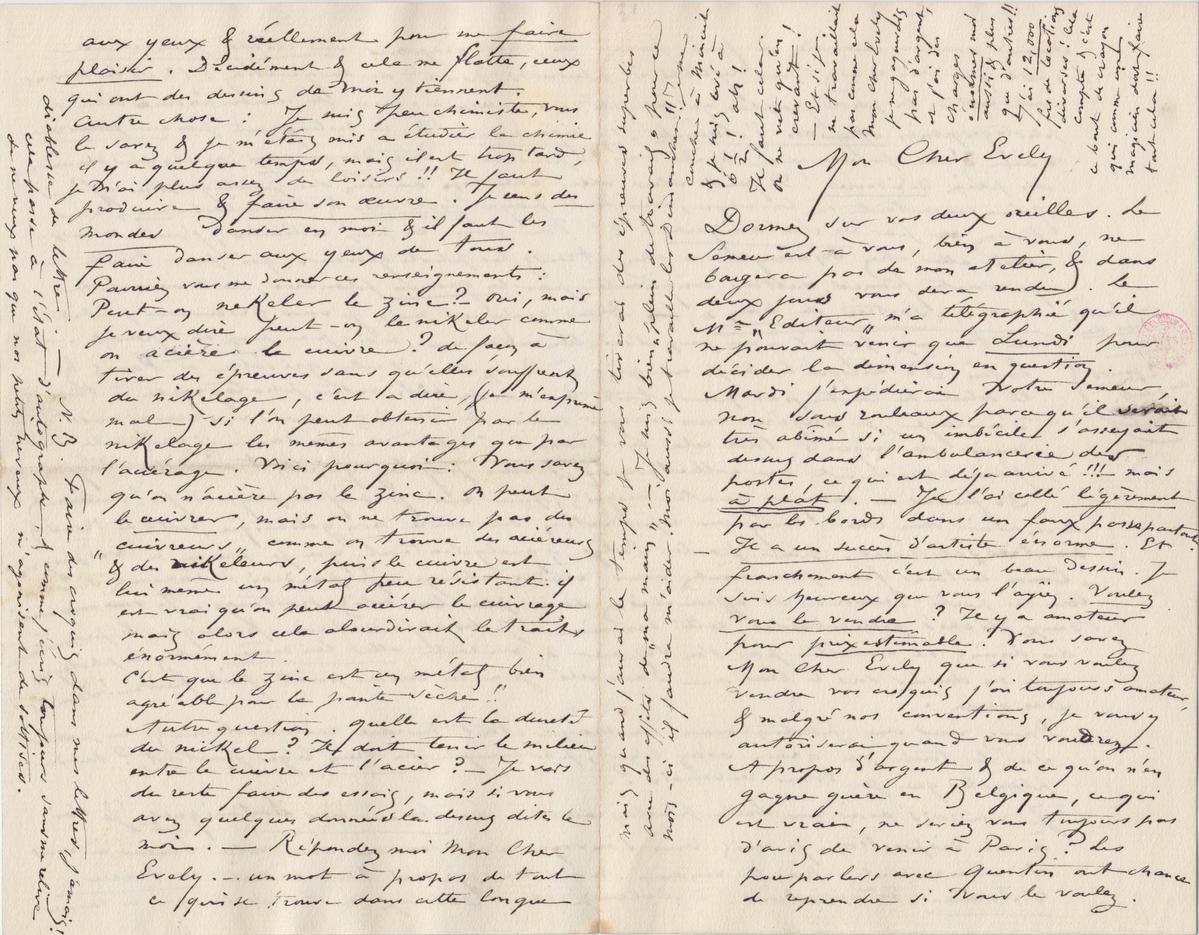 Mon Cher Evely
Dormez sur vos deux oreilles. Le
Semeur est à vous, bien à vous, ne
bougera pas de mon atelier, & dans
deux jours vous sera rendu. Le
Mr "Editeur" m'a télégraphié qu'il
ne pouvait venir que Lundi pour
décider la dimension en question.
Mardi j'expédierai Votre Semeur
non sous rouleaux parce qu'il serait
très abîmé si un imbécile s'asseyait
dessus dans l'ambulance des
postes, ce qui est déjà arrivé !!! mais
à plat. — Je l'ai collé légèrement
par les bords dans un faux passepartout.
— Il a un succès d'artiste énorme. Et
franchement c'est un beau dessin. Je
suis heureux que vous l'ayiez. Voulez
vous le vendre ? Il y a amateur
pour prix estimable. Vous savez
Mon Cher Evely que si vous voulez
vendre vos croquis j'ai toujours amateur,
& malgré nos conventions, je vous y
autoriserai quand vous voudrez.
A propos d'argent & de ce qu'on n'en
gagne guère en Belgique, ce qui
est vrai, ne seriez vous toujours pas
d'avis de venir à Paris ? Les
pourparlers avec Quentin ont chance
de reprendre si vous le voulez.
mais quand j'aurai le temps je vous tirerai des épreuves superbes
avec des effets de "ma main" — Je suis bien plein de travail, pour ce
mois-ci il faudra m'aider. Moi aussi je travaille les Dimanches !!! je me
couche à Minuit
& je suis levé à
6 h ½ ! ah !
Il faut cela.
on ne vit qu'en
crevant !
— Et si je
ne travaillait
pas comme cela
Mon cher Evely
je ne gagnerais
pas d'argent,
or j'ai des
charges
énormes moi
aussi & plus
que d'autres !!
J'ai 12,000
frs de locations
diverses ! cela
compte & c'est
ce bout de crayon
qui comme un
magicien doit faire
tout cela !!
aux yeux & réellement pour me faire
plaisir. Décidément & cela me flatte, ceux
qui ont des dessins de moi y tiennent.
Autre chose : Je suis peu chimiste, vous
le savez & je m'étais mis à étudier la chimie
il y a quelque temps, mais il est trop tard,
je n'ai plus assez de loisirs !! Il faut
produire & faire son œuvre. Je sens des
mondes danser en moi & il faut les
faire danser aux yeux de tous.
Pourriez vous me donner ces renseignements :
Peut-on nikeler le zinc ? — oui, mais
je veux dire peut-on le nikeler comme
on acière le cuivre ? de façon à
tirer des épreuves sans qu'elles souffrent
du nikelage, c'est à dire, (je m'exprime
mal) si l'on peut obtenir par le
nikelage les mêmes avantages que par
l'aciérage. Voici pourquoi : Vous savez
qu'on n'acière pas le zinc. On peut
le cuivrer, mais on ne trouve pas des
"cuivreurs" comme on trouve des aciéreurs
& des nikeleurs, puis le cuivre est
lui même un métal peu résistant. il
est vrai qu'on peut aciérer le cuivrage
mais alors cela alourdirait le travail
énormément.
C'est que le zinc est un métal bien
agréable pour la pointe sèche !!
Autre question. Quelle est la dureté
du nickel ? Il doit tenir le milieu
entre le cuivre et l'acier ? — Je vais
du reste faire des essais, mais si vous
avez quelques données là dessus dites le
moi. — Répondez moi Mon Cher
Evely. — un mot à propos de tout
ce qui se trouve dans cette longue
diablesse de lettre. — N.B. Faire des croquis dans mes lettres, jamais !
cela passe à l'état d'autographe, & comme j'écris toujours sans me relire
je ne veux pas que nos petits neveux m'agonisent de sottises.